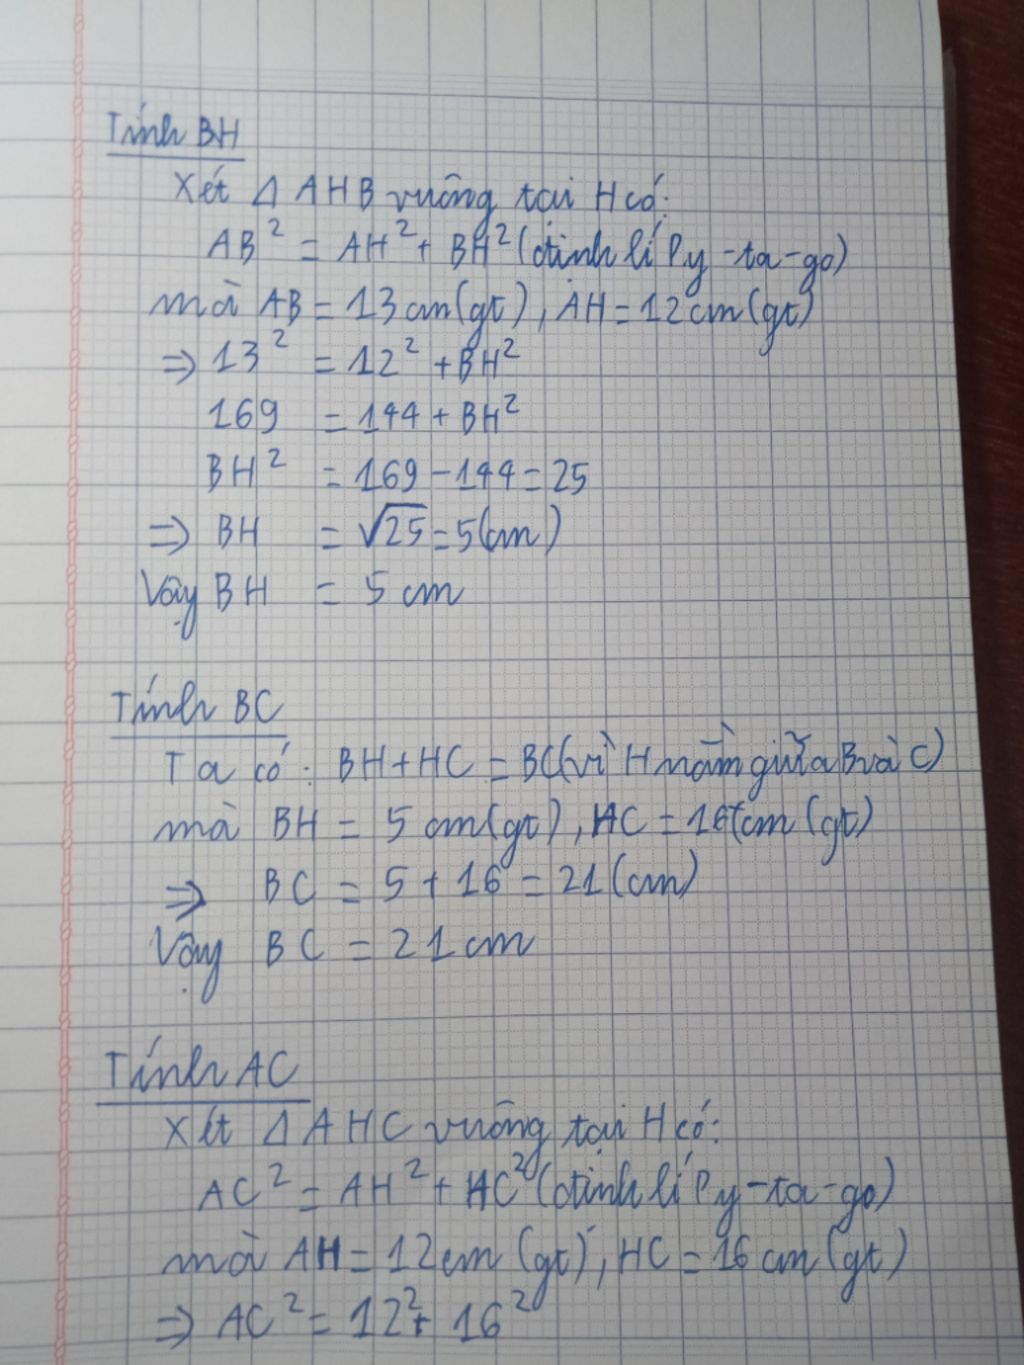 Tính BH
Xét Δ AHB vuông tại H có:
AB² = AH² + BH² (định lí Py-ta-go)
mà AB = 13 cm (gt), AH = 12 cm (gt)
⇒ 13² = 12² + BH²
169 = 144 + BH²
BH² = 169 - 144 = 25
⇒ BH = √25 = 5 (cm)
Vậy BH = 5 cm
Tính BC
Ta có: BH + HC = BC (vì H nằm giữa B và C)
mà BH = 5 cm (gt), HC = 16 cm (gt)
⇒ BC = 5 + 16 = 21 (cm)
Vậy BC = 21 cm
Tính AC
Xét Δ AHC vuông tại H có:
AC² = AH² + HC² (định lí Py-ta-go)
mà AH = 12 cm (gt), HC = 16 cm (gt)
⇒ AC² = 12² + 16²